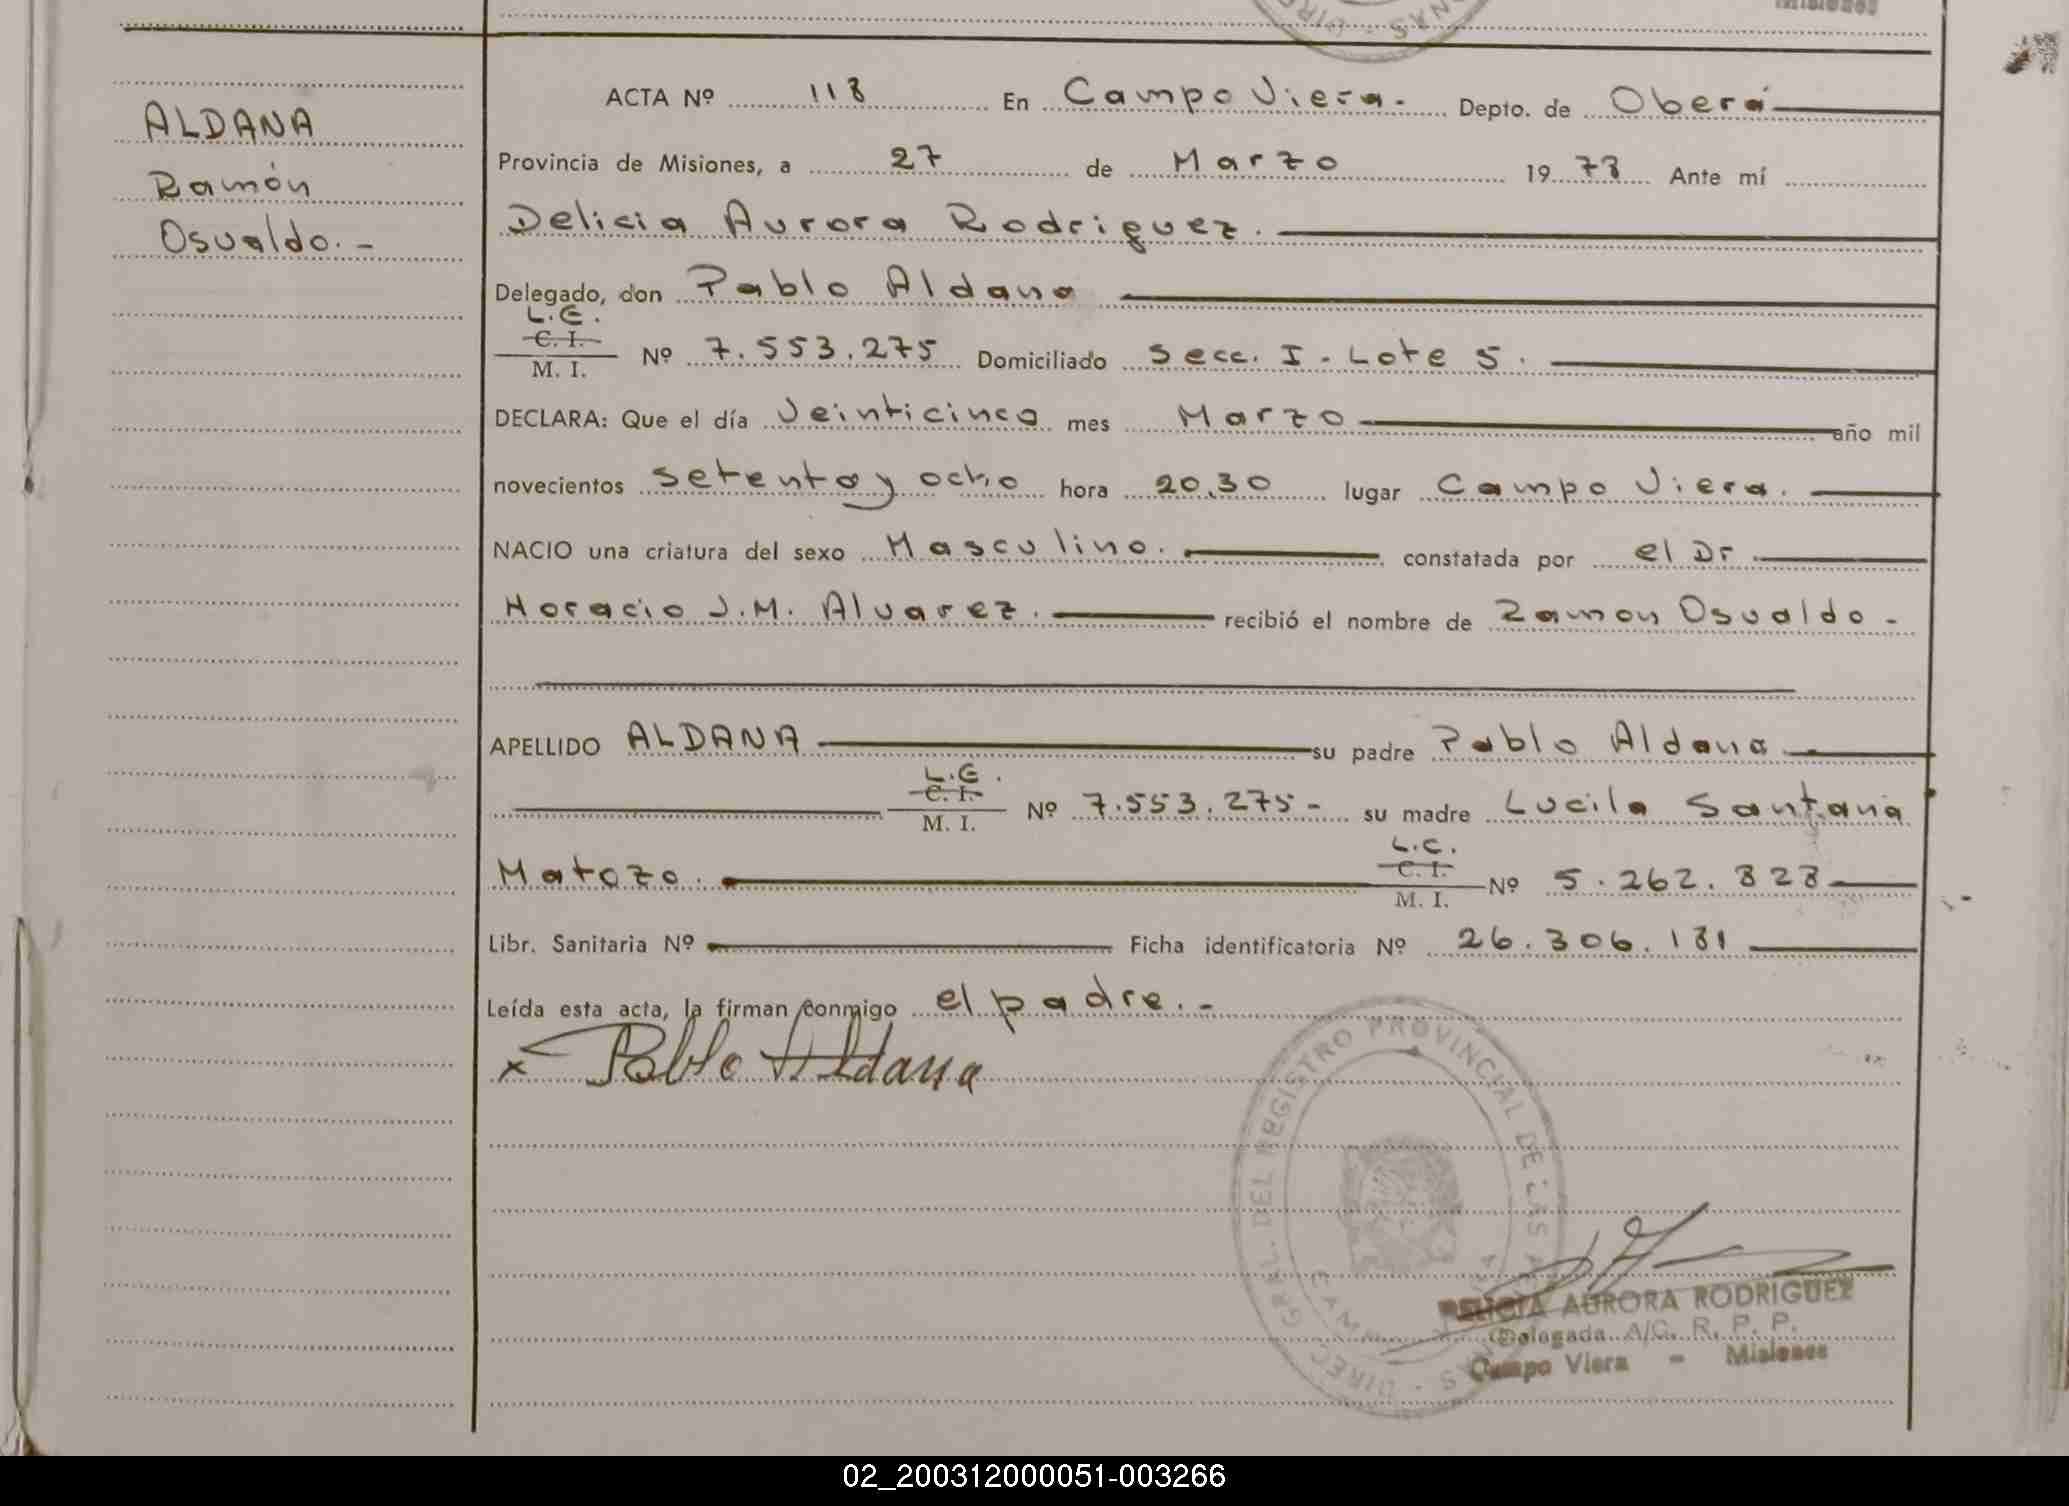 Misiones
ALDANA
Ramón
Osvaldo.-
ACTA Nº 118 En Campo Viera.- Depto. de Oberá
Provincia de Misiones, a 27 de Marzo 1978 Ante mí
Delicia Aurora Rodriguez.
Delegado, don Pablo Aldana
L.E.
C. I.
M. I. Nº 7.553.275 Domiciliado Secc. I - Lote 5.
DECLARA: Que el día Veinticinco mes Marzo año mil
novecientos setenta y ocho hora 20,30 lugar Campo Viera.
NACIO una criatura del sexo Masculino. constatada por el Dr.
Horacio J.M. Alvarez. recibió el nombre de Ramon Osvaldo -
APELLIDO ALDANA su padre Pablo Aldana
L.E.
C. I.
M. I. Nº 7.553.275- su madre Lucila Santana
L.C.
Matozo. C. I.
M. I. Nº 5.262.828
Libr. Sanitaria Nº Ficha identificatoria Nº 26.306.181
Leída esta acta, la firman conmigo el padre.-
x Pablo Aldana
DIREC. GRAL. DEL REGISTRO PROVINCIAL DE LAS PERSONAS
DELICIA AURORA RODRIGUEZ
Delegada A/C. R. P. P.
Campo Viera - Misiones
02_200312000051-003266